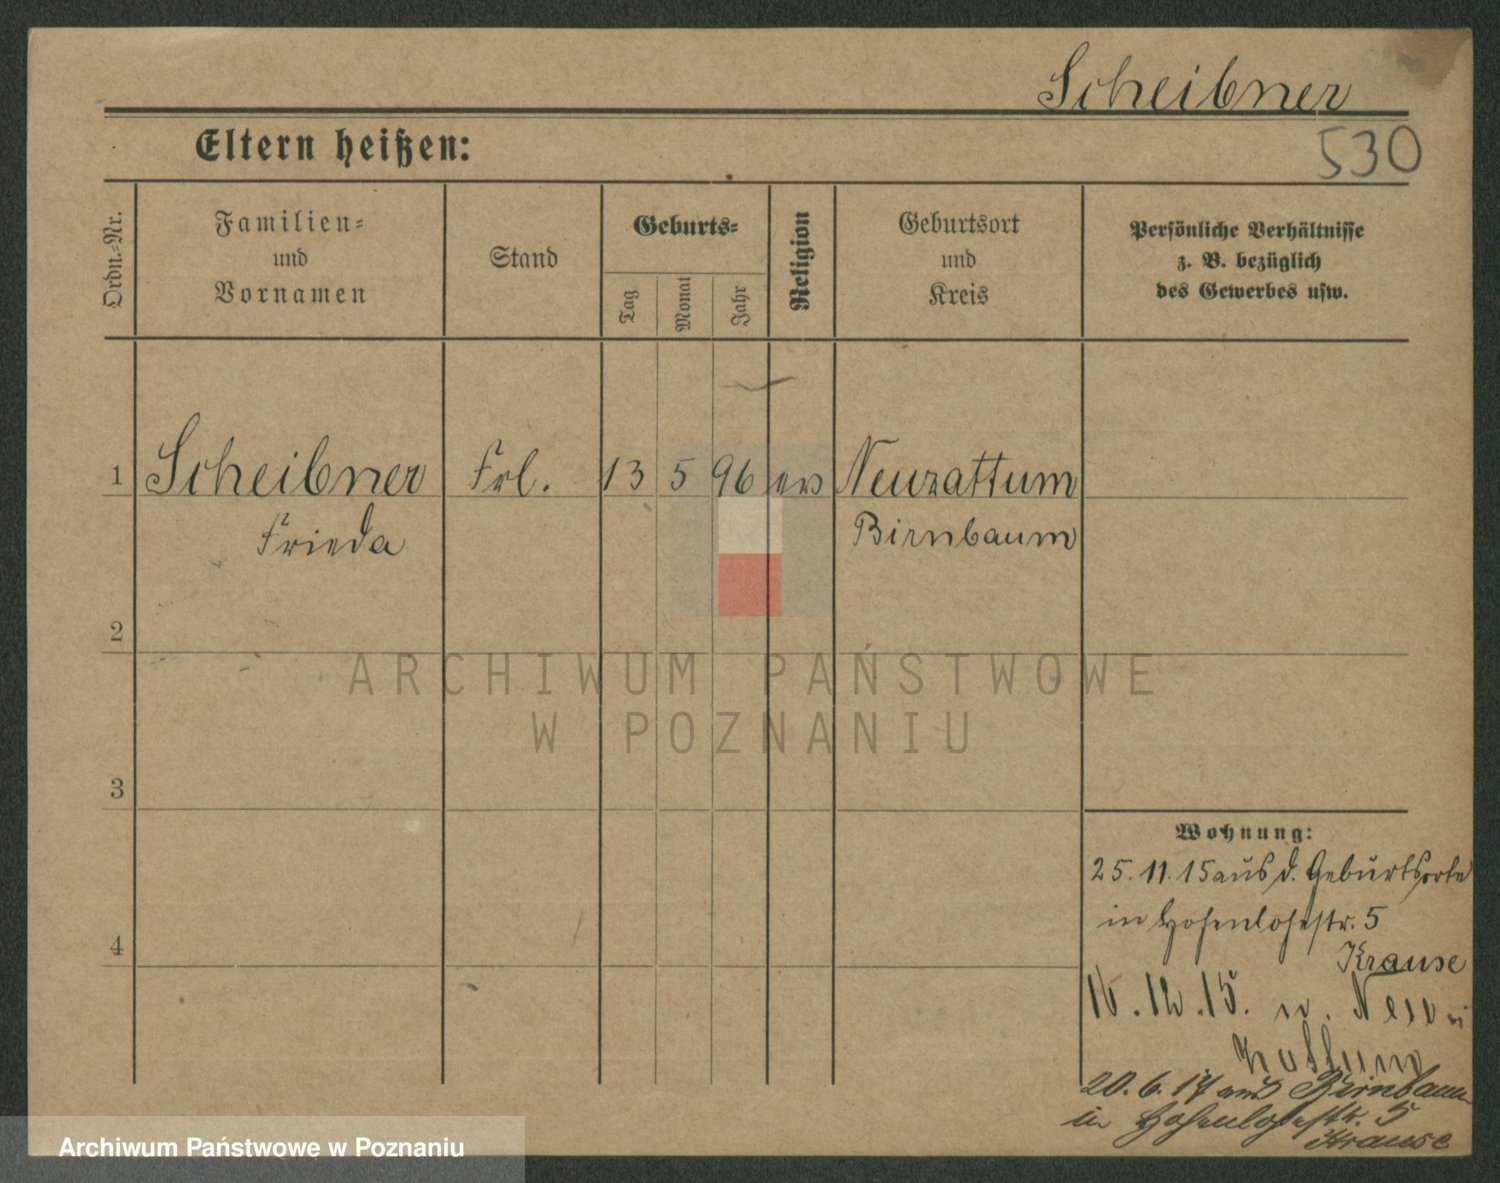 Scheibner
Eltern heißen:
530
Ordn.-Nr.
Familien-
und
Vornamen
Stand
Geburts-
Tag
Monat
Jahr
Religion
Geburtsort
und
Kreis
Persönliche Verhältnisse
z. B. bezüglich
des Gewerbes usw.
1 Scheibner Frl. 13 5 96 ev Neuzattum
Frieda Birnbaum
2
ARCHIWUM PAŃSTWOWE
W POZNANIU
3
Wohnung:
25.11.15 aus d. Geburtsorte
in Hohenlohestr. 5
4
Krause
16.12.15. n. Neu
zattum
20.6.17 aus Birnbaum
in Hohenlohestr. 5
Krause
Archiwum Państwowe w Poznaniu